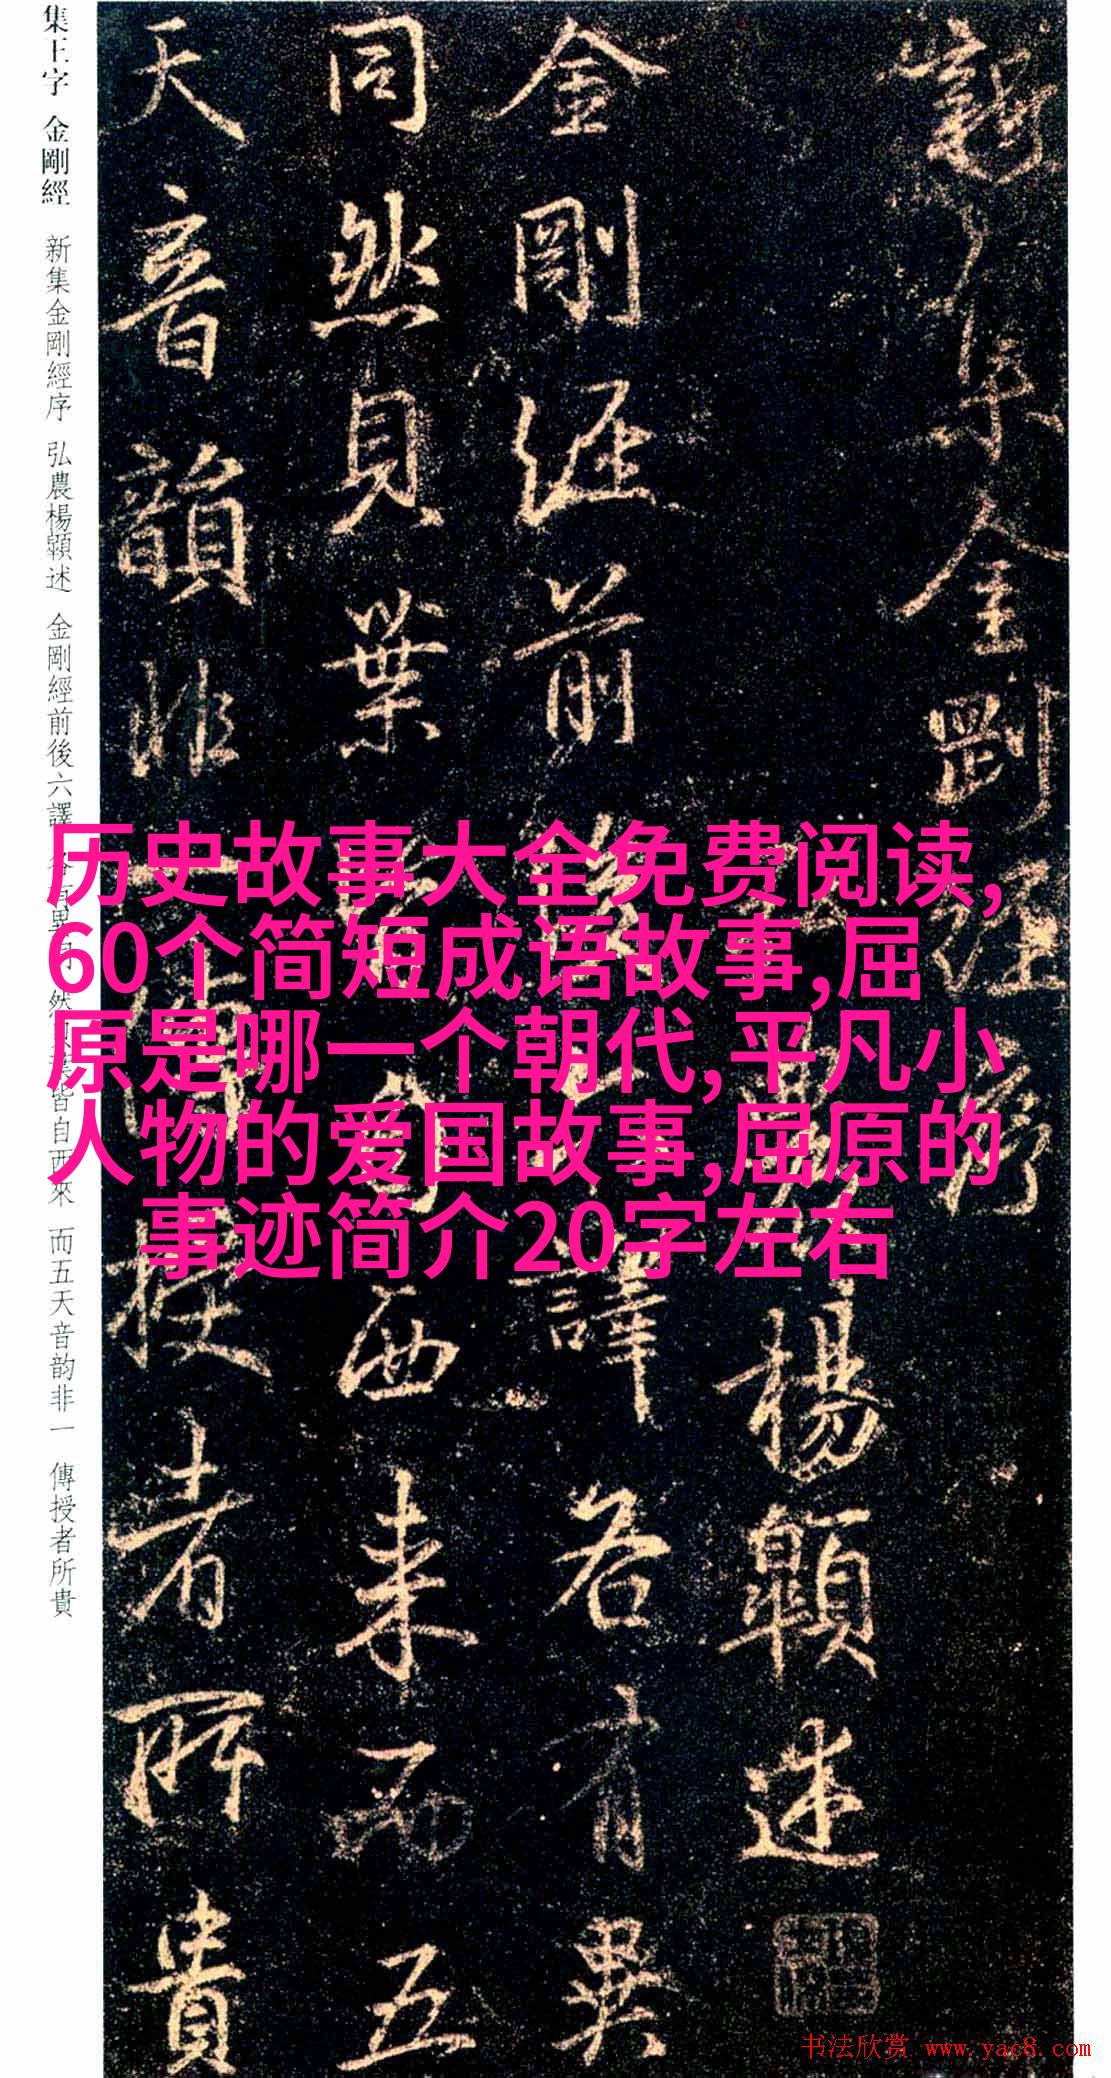 集王字 金剛經 新集金剛經序 弘農楊述 金剛經前後六譯 各有異同 然貝葉皆自西來 而五天音韵非一 傳授者所貴
新集金剛經序
弘農楊述
金剛經前後六譯各有異
同然貝葉皆自西来而五
天音韻非一傳授者所貴
历史故事大全免费阅读,
60个简短成语故事,屈
原是哪一个朝代,平凡小
人物的爱国故事,屈原的
事迹简介20字左右
书法欣赏 www.yac8.com